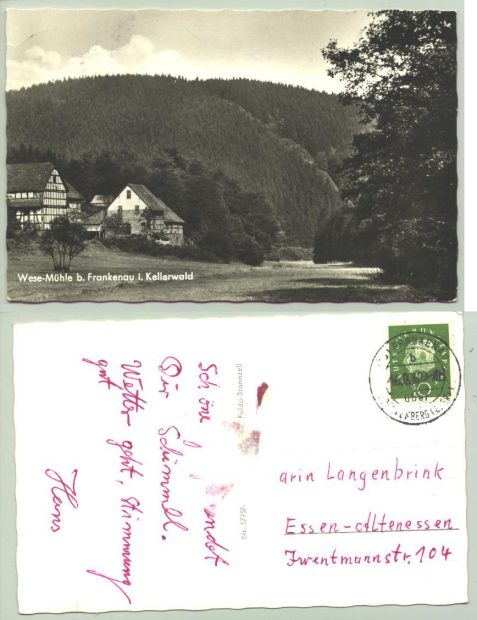 Wese-Mühle b. Frankenau i. Kellerwald
Schöne
Dir Schimmel.
Wetter geht, Stimmung
gut
Hans
Fulda-Bronnzell
Nr. 5795
10
arin Langenbrink
Essen-Altenessen
Zwentmannstr. 104